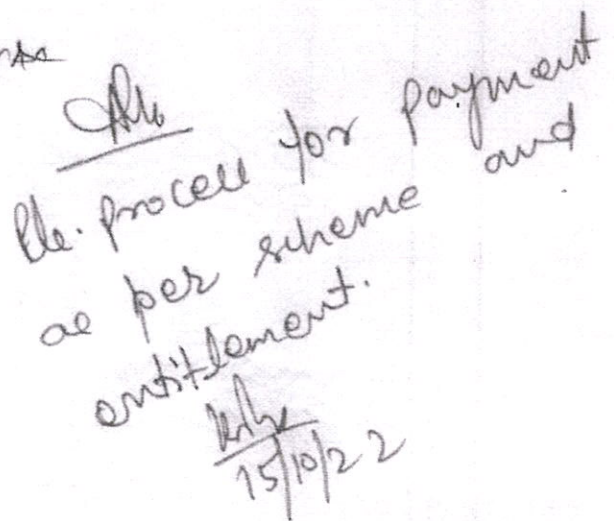 Ple. process for payment
as per scheme and
entitlement.
15/10/22